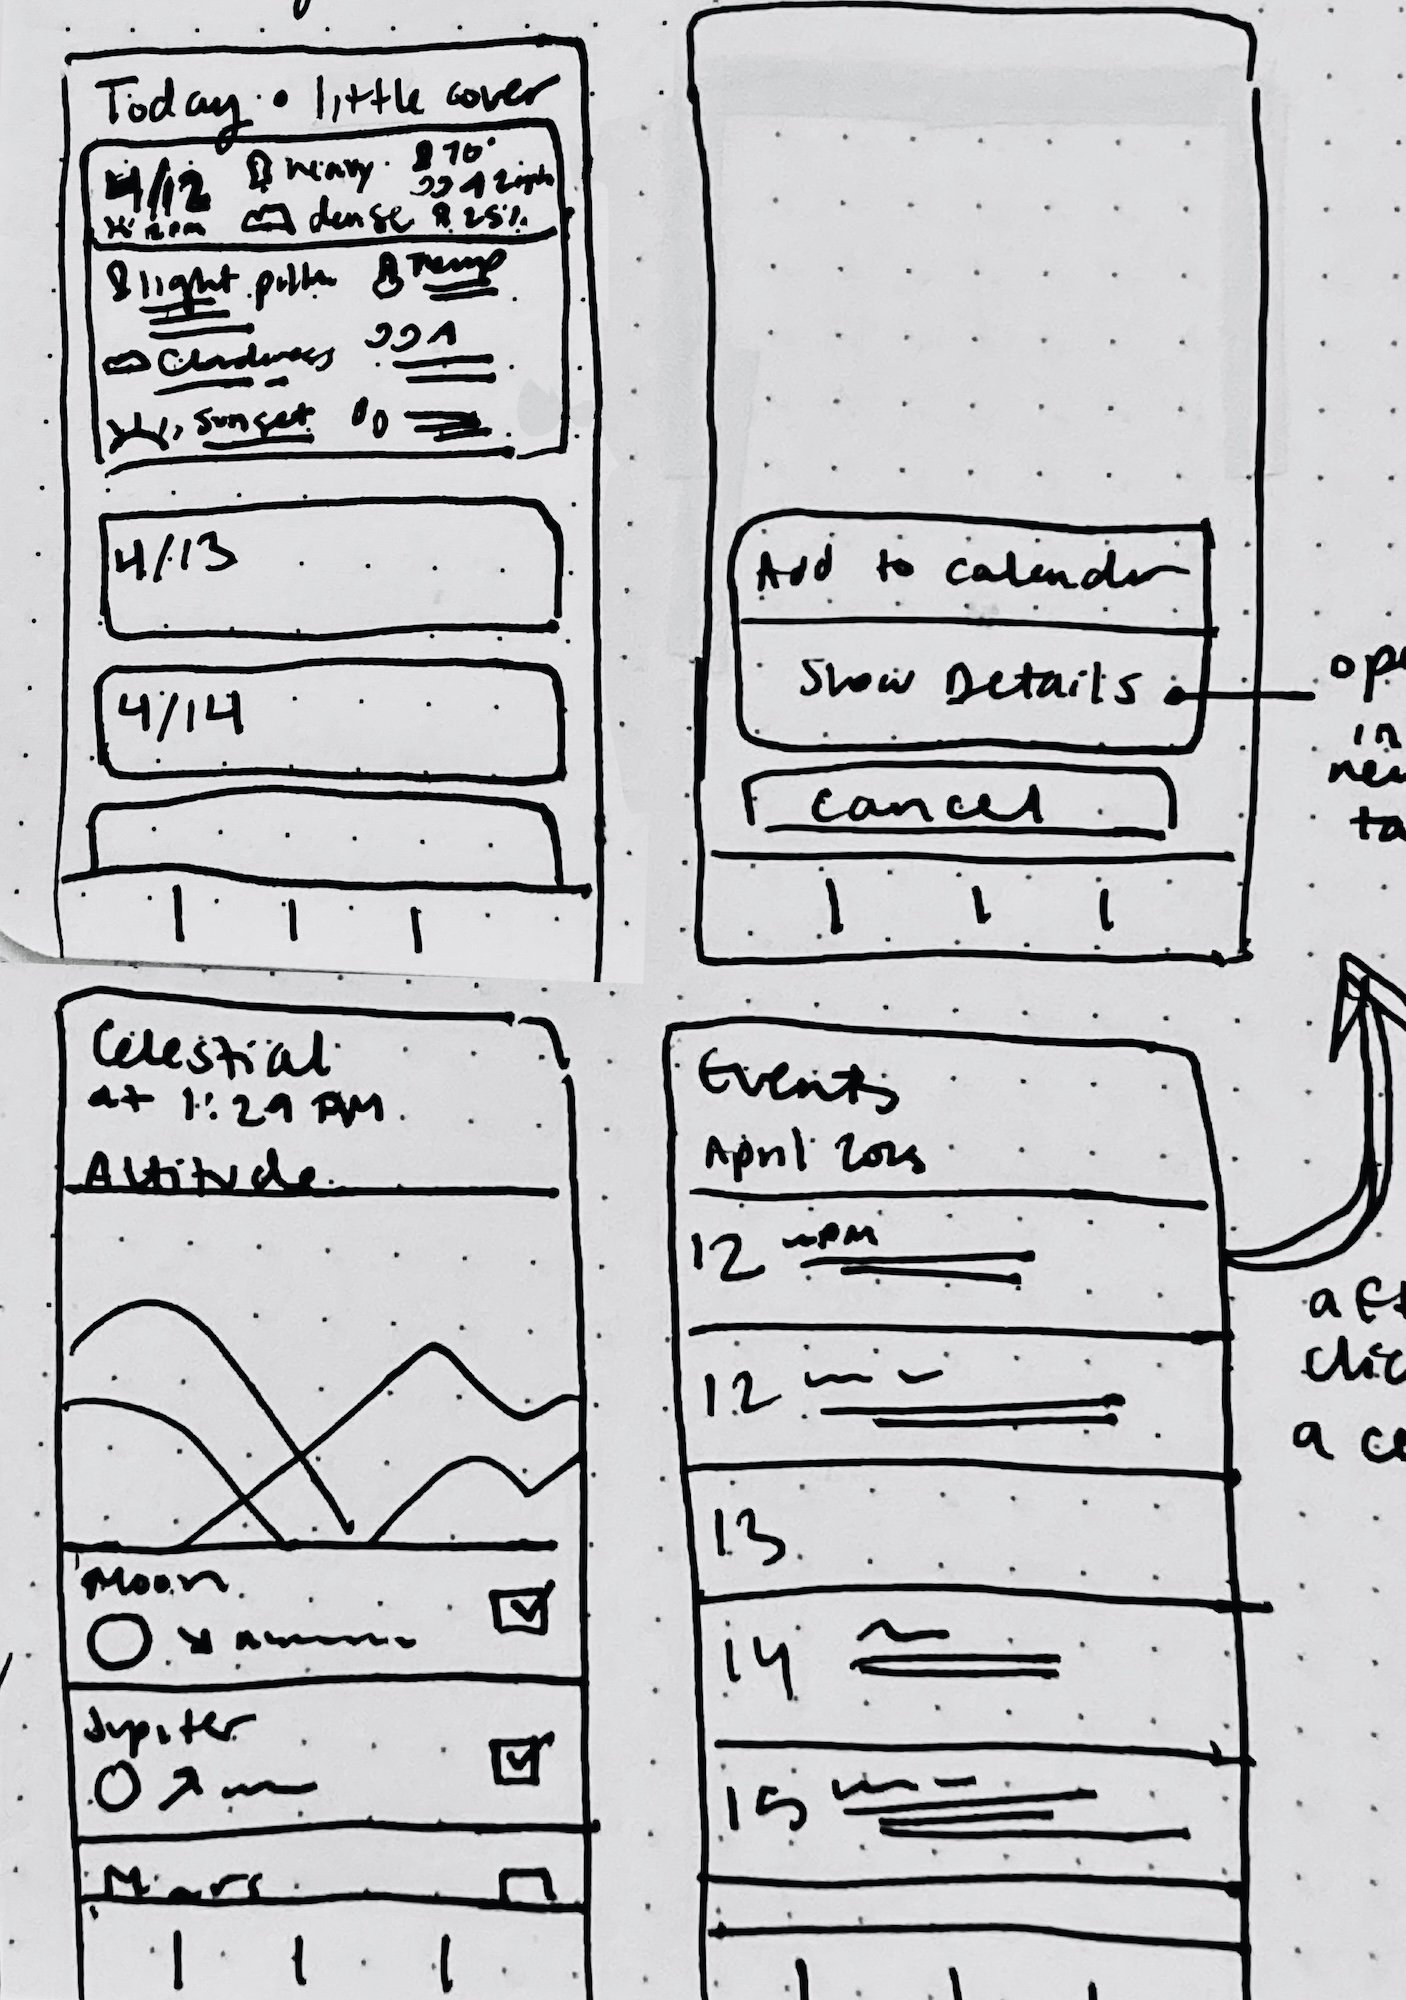 Today • little cover
4/12 heavy 70°
dense 25%
light Temp
Cloudiness
Sunset
4/13
4/14
Add to calender
Show Details
Cancel
in
Celestial
at 1:29 PM
Altitude
Moon
Jupiter
Mars
Events
April
12 PM
12
13
14
15
a